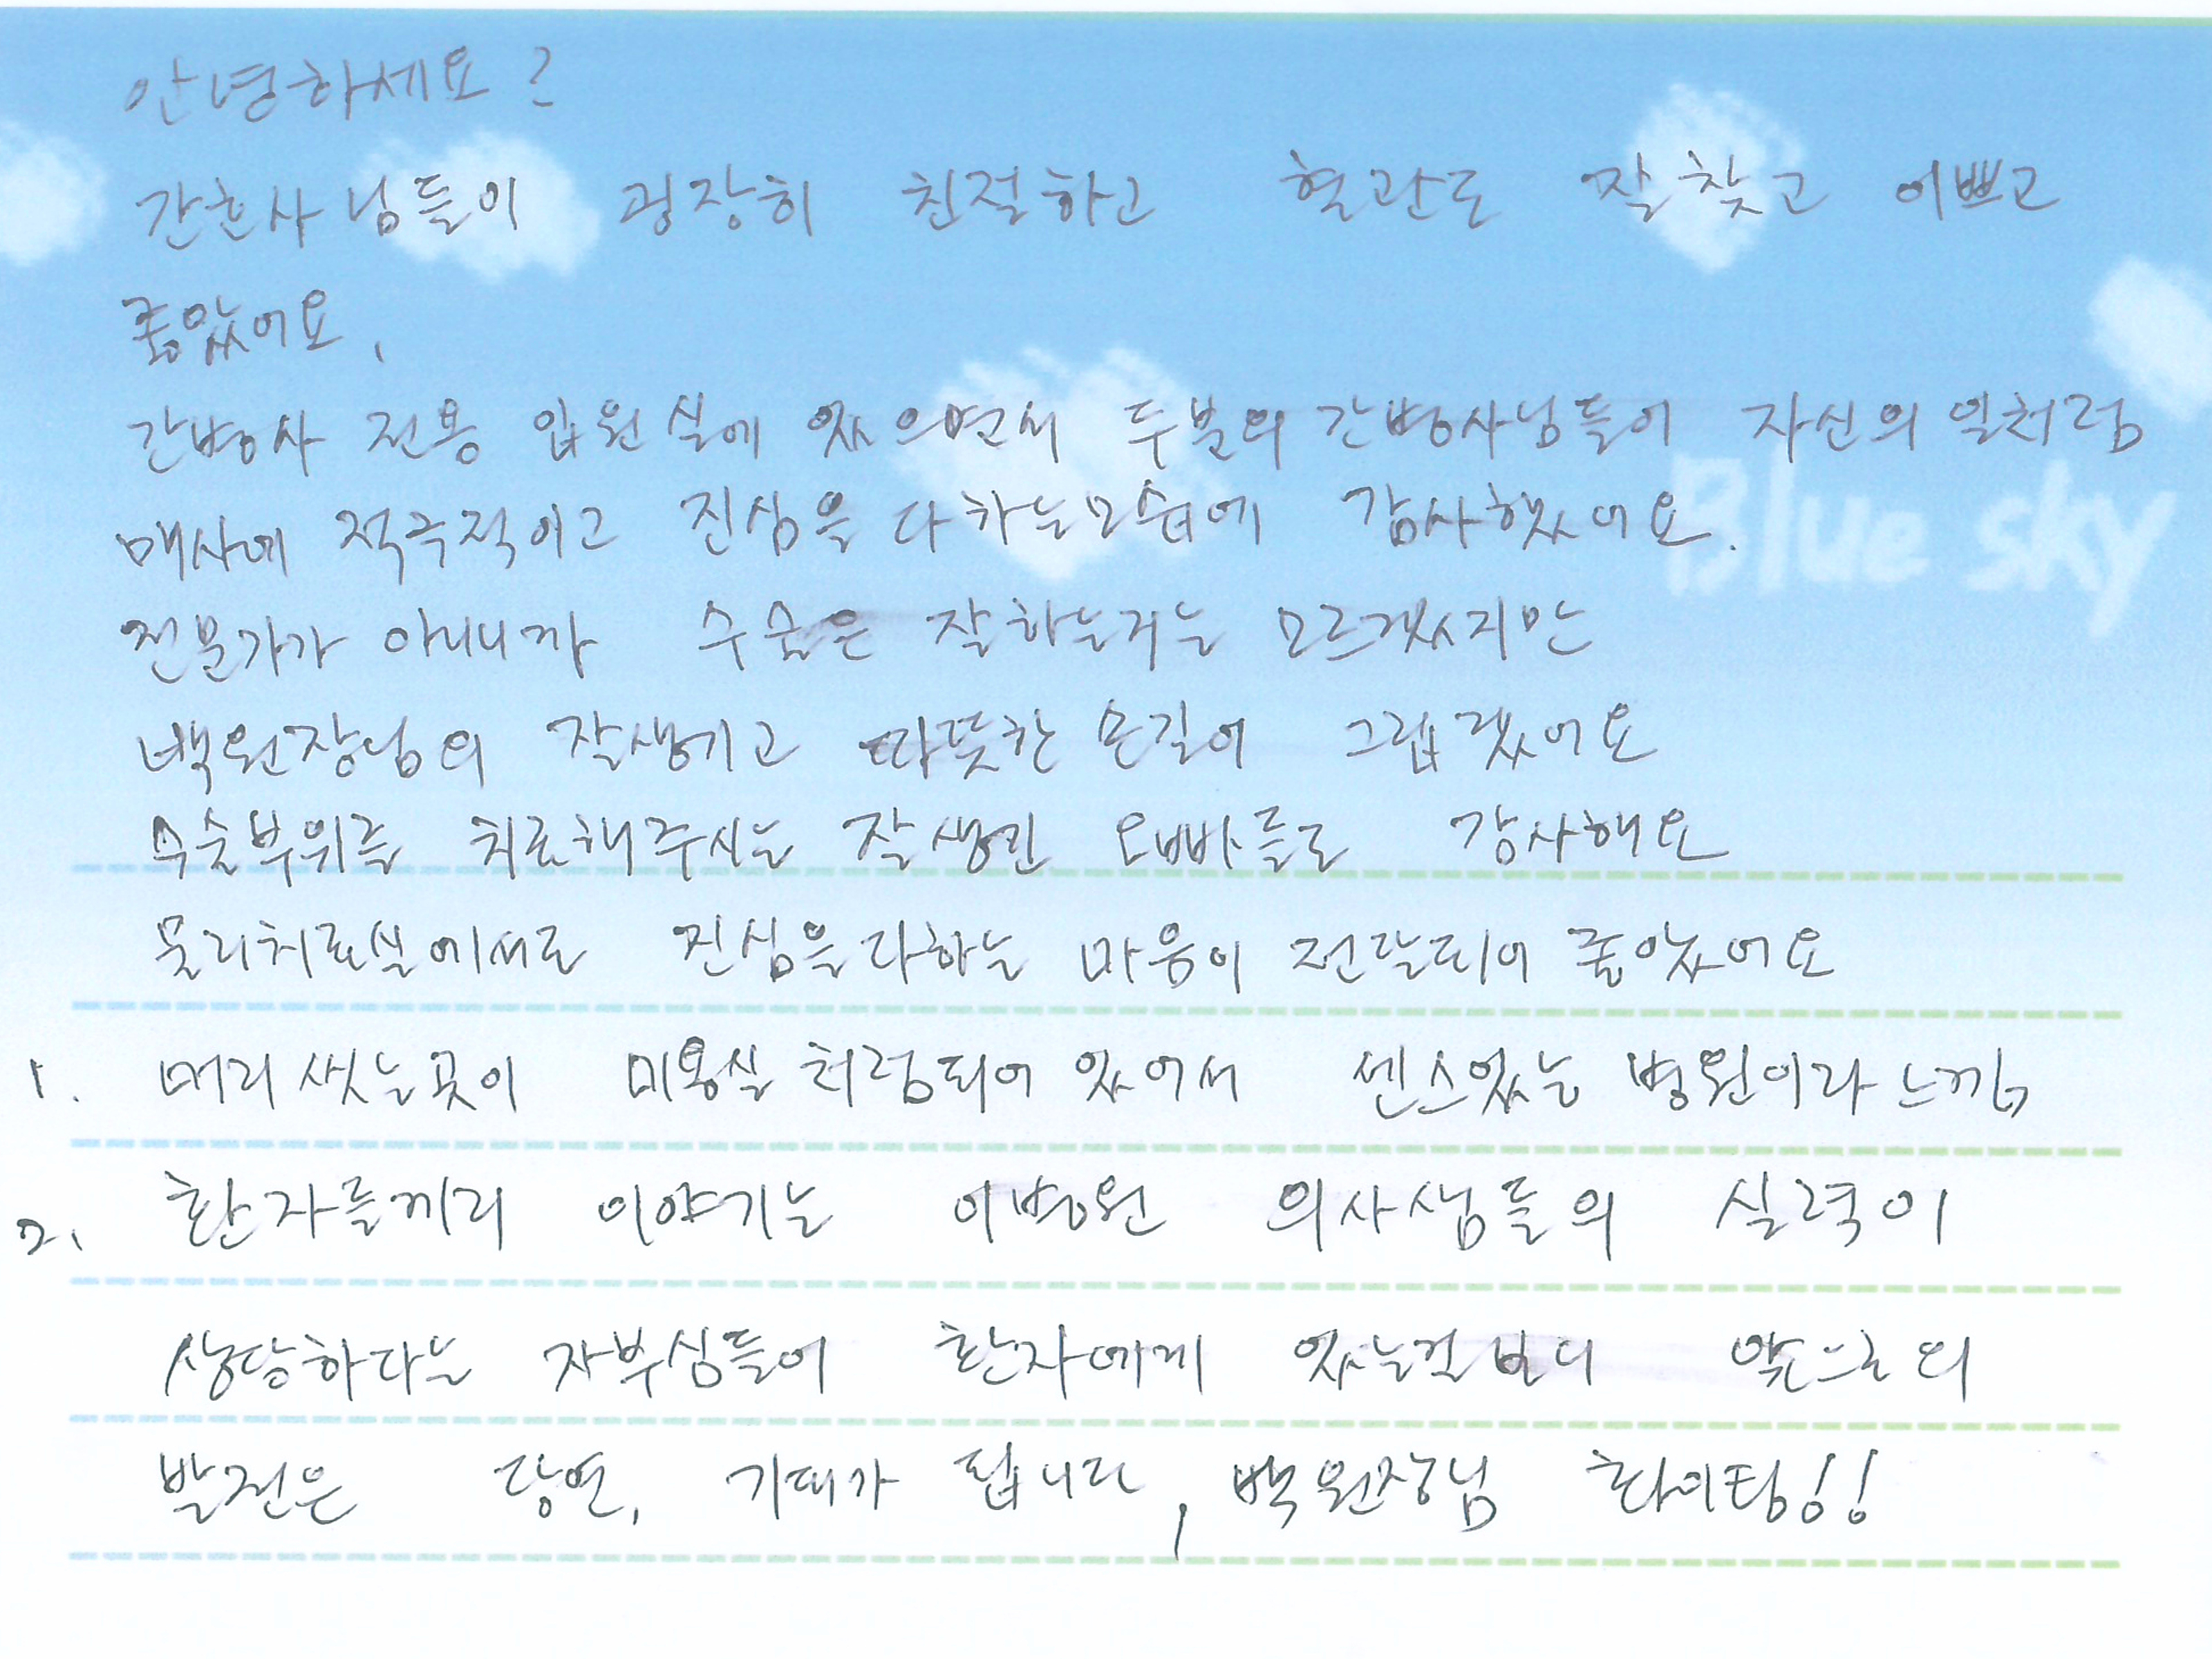 안녕하세요?
간호사님들이 굉장히 친절하고 혈관도 잘찾고 이쁘고
좋았어요.
간병사 전용 입원실에 있으면서 두분의 간병사님들이 자신의 일처럼
매사에 적극적이고 진심을 다하는모습에 감사했어요.
Blue sky
전문가가 아니니까 수술은 잘하는지는 모르겠지만
백원장님의 잘생기고 따뜻한 손길이 그립겠어요
수술부위를 치료해주시는 잘생긴 오빠들도 감사해요
물리치료실에서도 진심을다하는 마음이 전달되어 좋았어요
1. 머리씻는곳이 미용실처럼되어 있어서 센스있는 병원이라 느낌
2. 환자들끼리 이야기는 이병원 의사샘들의 실력이
상당하다는 자부심들이 환자에게 있는걸 보니 앞으로의
발전은 당연, 기대가 됩니다, 백원장님 화이팅!!